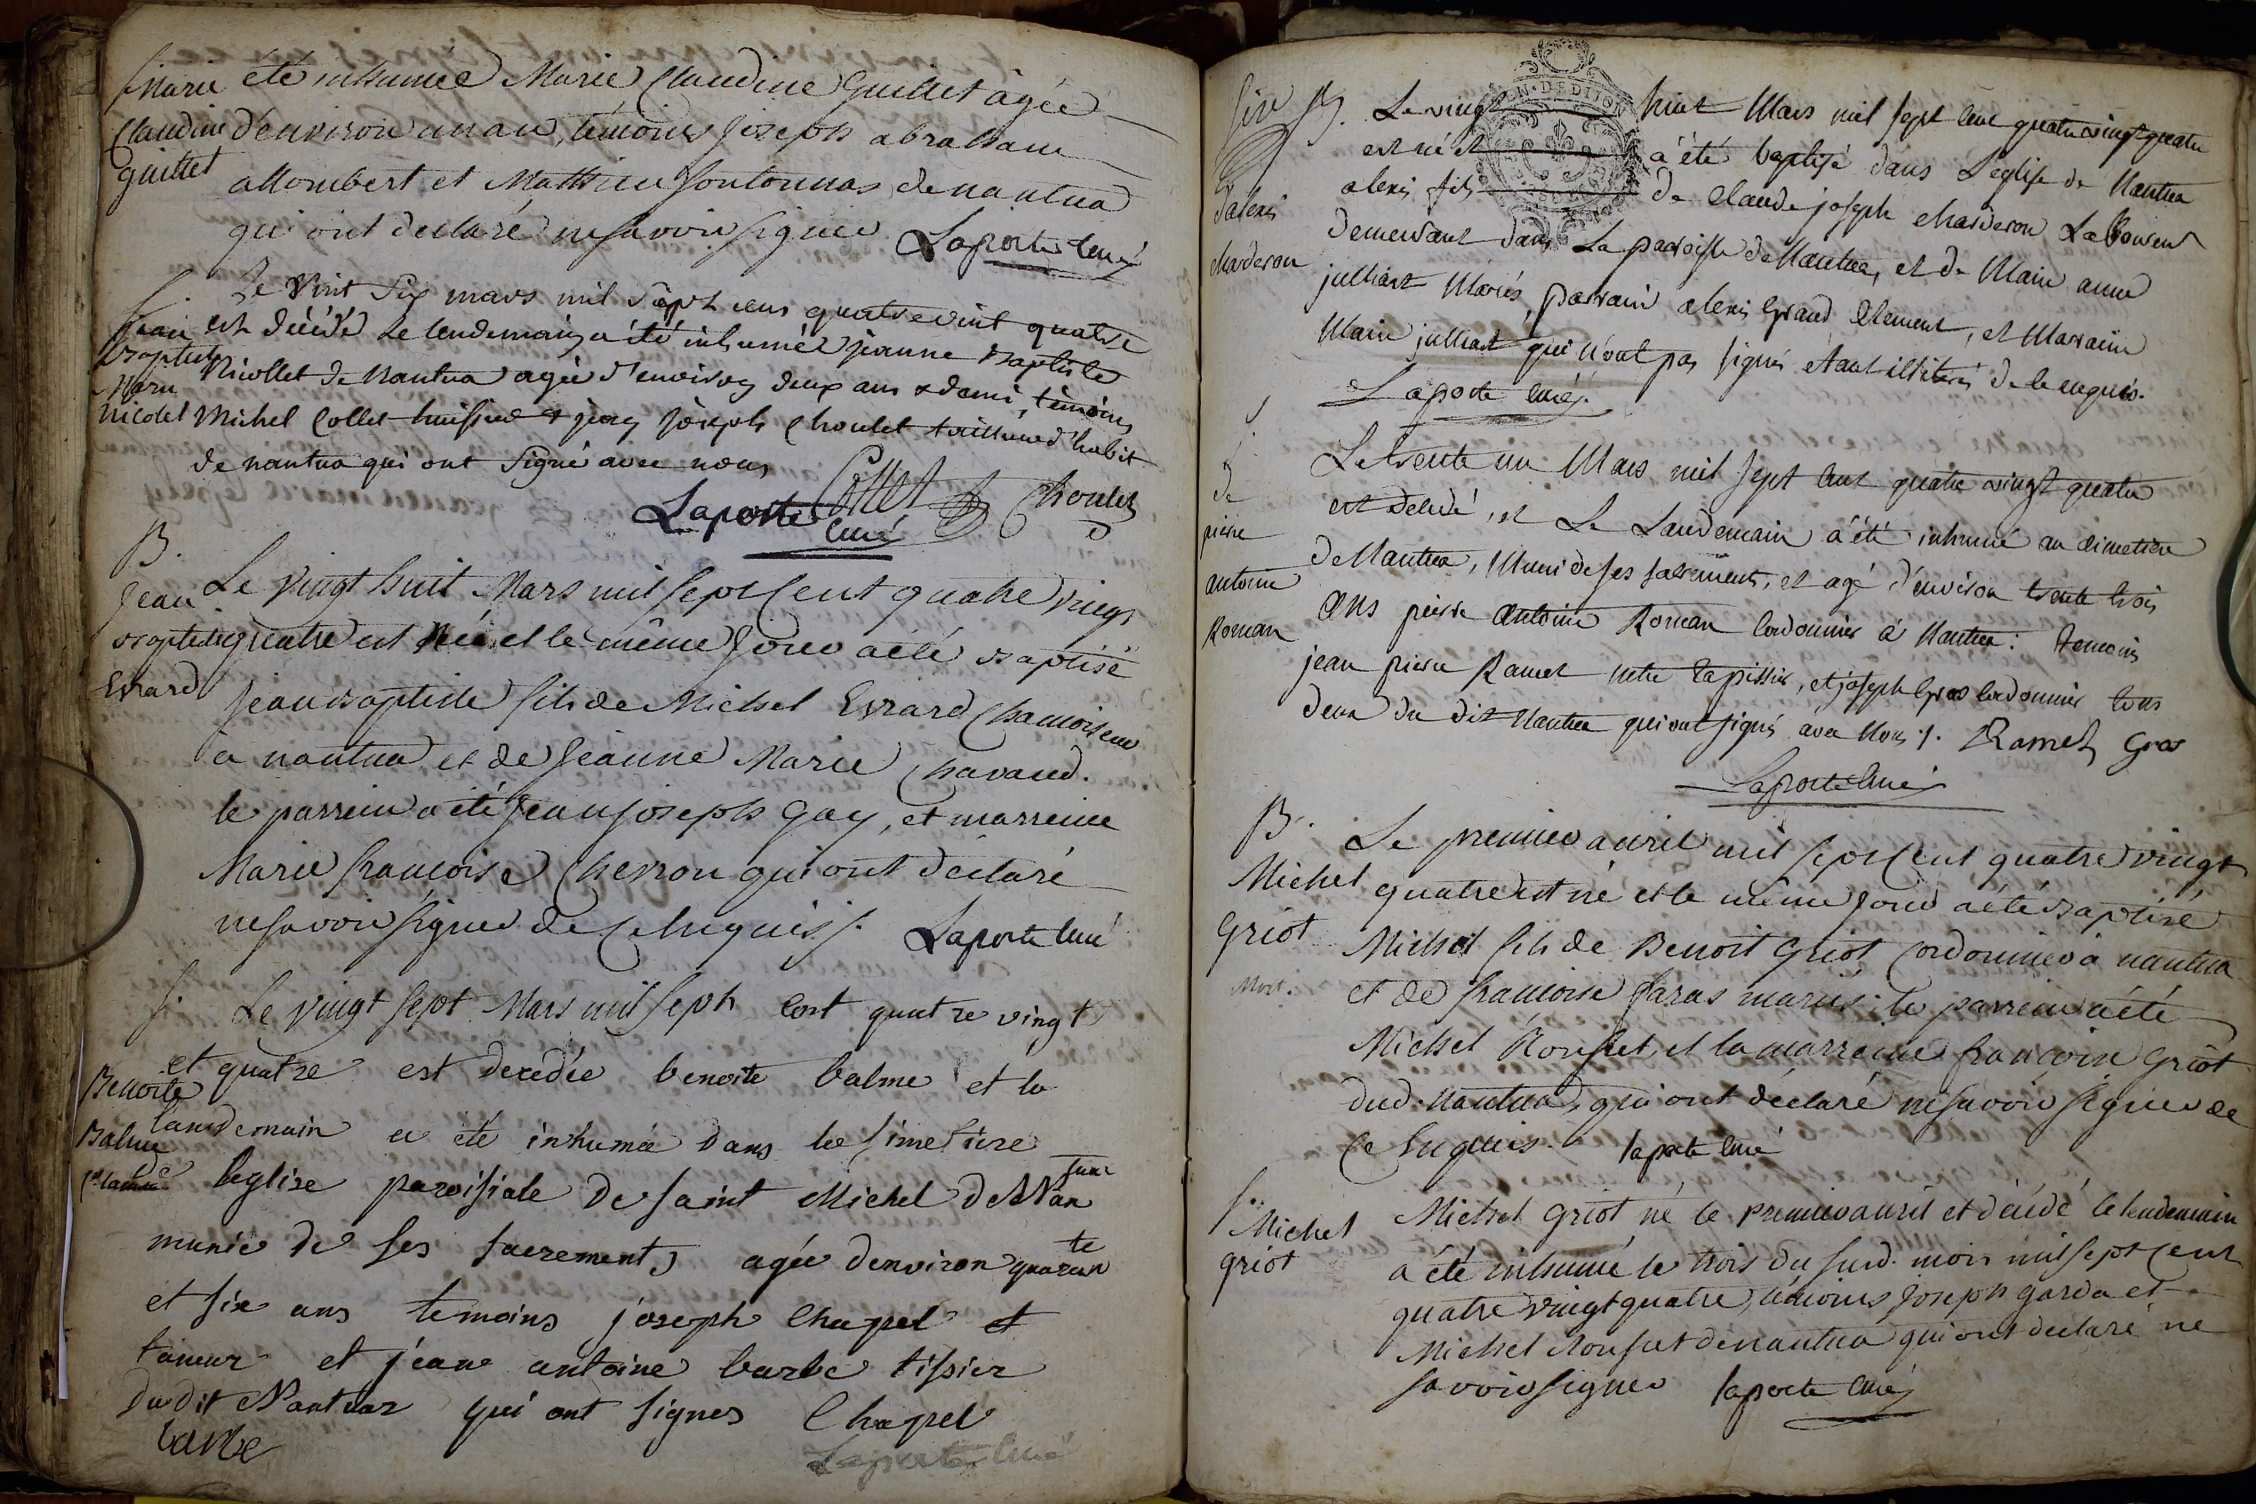 Marie
Claudine
guillet
été inhumée Marie Claudine Guillet agée
d'environ un an, témoins Joseph abraham
allombert et Mathieu fontonnas de nantua
qui ont declaré ne savoir signer Laporte curé
jean
baptiste
nicolet
Le vint six mars mil sept cens quatre vint quatre
est décédé le lendemain a été inhumée jeanne baptiste
Nicollet de Nantua agée d'environ deux ans & demi, témoins
Michel Collet huissier & jean joseph Choulet tailleur d'habit
de nantua qui ont signé avec nous
Collet Choulet
Laporte
curé
B.
Jean
baptiste
Evrard
Le vingt huit Mars mil sept cent quatre vingt
quatre est né et le même jour a été baptisé
jean baptiste fils de Michel Evrard Chamoiseur
a nantua et de Jeanne Marie Chavand.
le parrein a été jean joseph Gay, et marreine
Marie francoise Chevron qui ont declaré
ne savoir signer de ce enquis ./. Laporte curé
S.
Benoite
Balme
Le vingt sept Mars mil sept cent quatre vingt
et quatre est decedée benoite balme et le
landemain a été inhumée dans le simetiere
de leglise paroisiale de saint Michel de Nan
tua
munie de ses sacrements agée d'environ quaran
te
et six ans temoins joseph Chapel et
taneur et jean antoine barbe tissier
du dit Nantuaz qui ont signes Chapel
barbe
Laporte curé
GEN. DE DIJON
B.
d'alexis
Charderon
Le vingt huit Mars mil sept cent quatre vingt quatre
est né et a été baptisé dans l'église de Nantua
alexis fils de Claude joseph Charderon Laboureur
demeurant dans la paroisse de Nantua, et de Marie anne
julliart Mariés, parrain alexis Grand Clement, et Marraine
Marie julliart qui n'ont pas signés étant illitérés de ce enquis.
Laporte curé.
S.
de
pierre
antoine
Roman
Le trente un Mars mil sept cent quatre vingt quatre
est décédé, et le landemain a été inhumé au cimetiere
de Nantua, Muni de ses sacréments, et agé d'environ trente trois
ans pierre antoine Roman cordonnier à Nantua: temoins
jean pierre Ramel tapissier, et joseph Gros cordonnier tous
deux du dit Nantua qui ont signés avec Nous ./. Ramel Gros
Laporte curé
B.
Michel
Griot
Mort.
Le premier avril mil sept cent quatre vingt
quatre est né et le même jour a été baptisé
Michel fils de Benoit Griot cordonnier a nantua
et de francoise faras mariés. le parrein a été
Michel Rousset et la marreine francoise Griot
dud. nantua, qui ont déclaré ne savoir signer de
ce enquis. laporte curé
S.
Michel
griot
Michel Griot né le premier avril et décédé le lendemain
a été inhumé le trois du sud. mois mil sept cent
quatre vingt quatre, témoins Joseph garda et
Michel Rousset de nantua qui ont declaré ne
savoir signer laporte curé